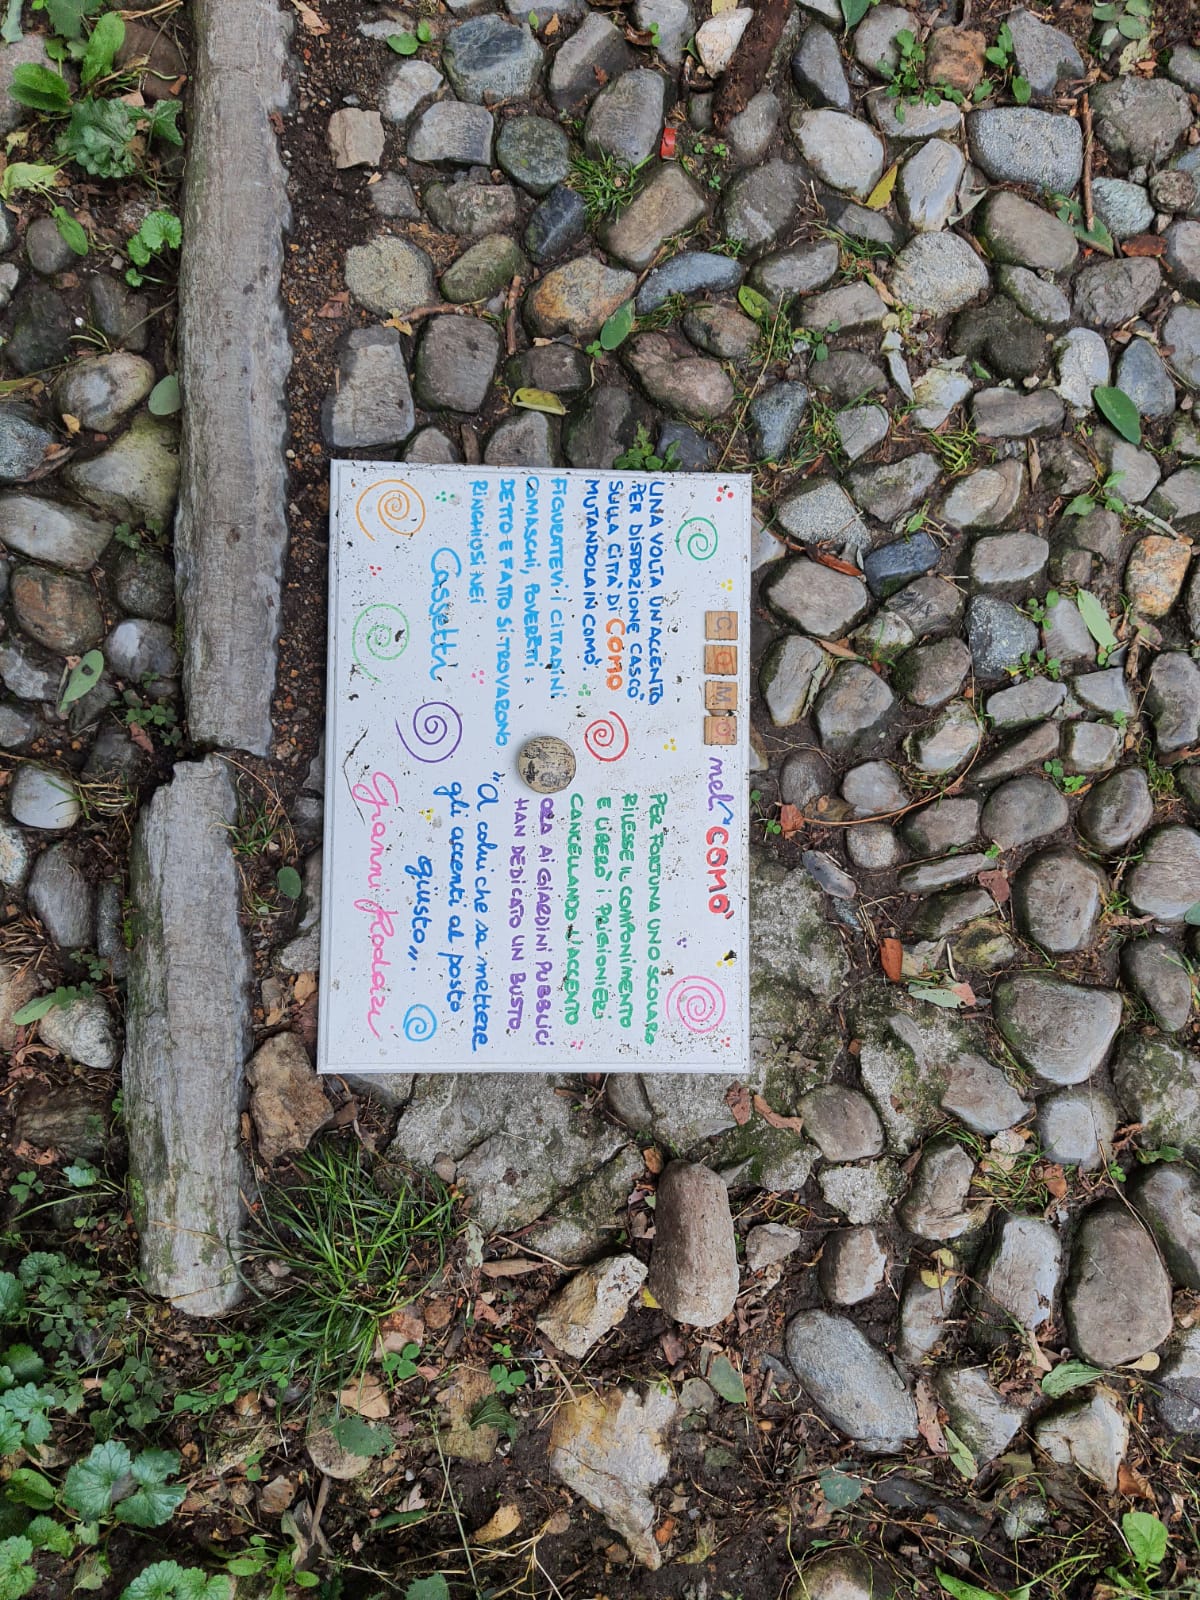 COMO nel COMÒ
UNA VOLTA UN'ACCENTO
PER DISTRAZIONE CASCÒ
SULLA CITTÀ DI COMO
MUTANDOLA IN COMÒ.
FIGURATEVI I CITTADINI
COMASCHI, POVERETTI:
DETTO E FATTO SI TROVARONO
RINCHIUSI NEI
Cassetti
PER FORTUNA UNO SCOLARO
RILESSE IL COMPONIMENTO
E LIBERÒ I PRIGIONIERI
CANCELLANDO L'ACCENTO
ORA AI GIARDINI PUBBLICI
HAN DEDICATO UN BUSTO
"A colui che sa mettere
gli accenti al posto
giusto".
Gianni Rodari